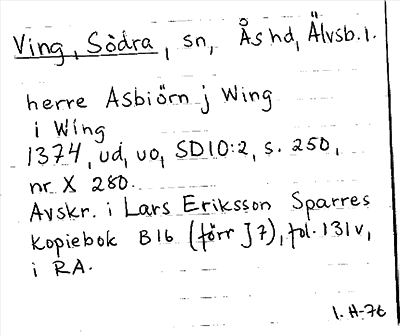 Ving, Södra, sn, Ås hd, Älvsb. l.
herre Asbiörn j Wing
i Wing
1374, ud, uo, SD10:2, s. 250,
nr X 280.
Avskr. i Lars Eriksson Sparres
kopiebok B16 (förr J7), fol. 131v,
i RA.
1. H-76